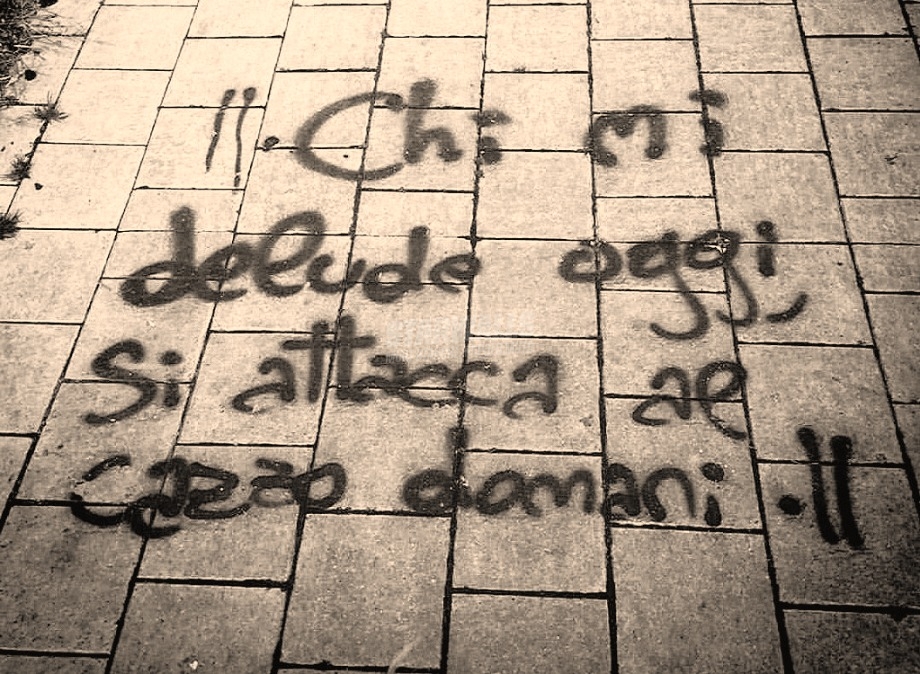 ".Chi mi
delude oggi,
si attacca al
cazzo domani."